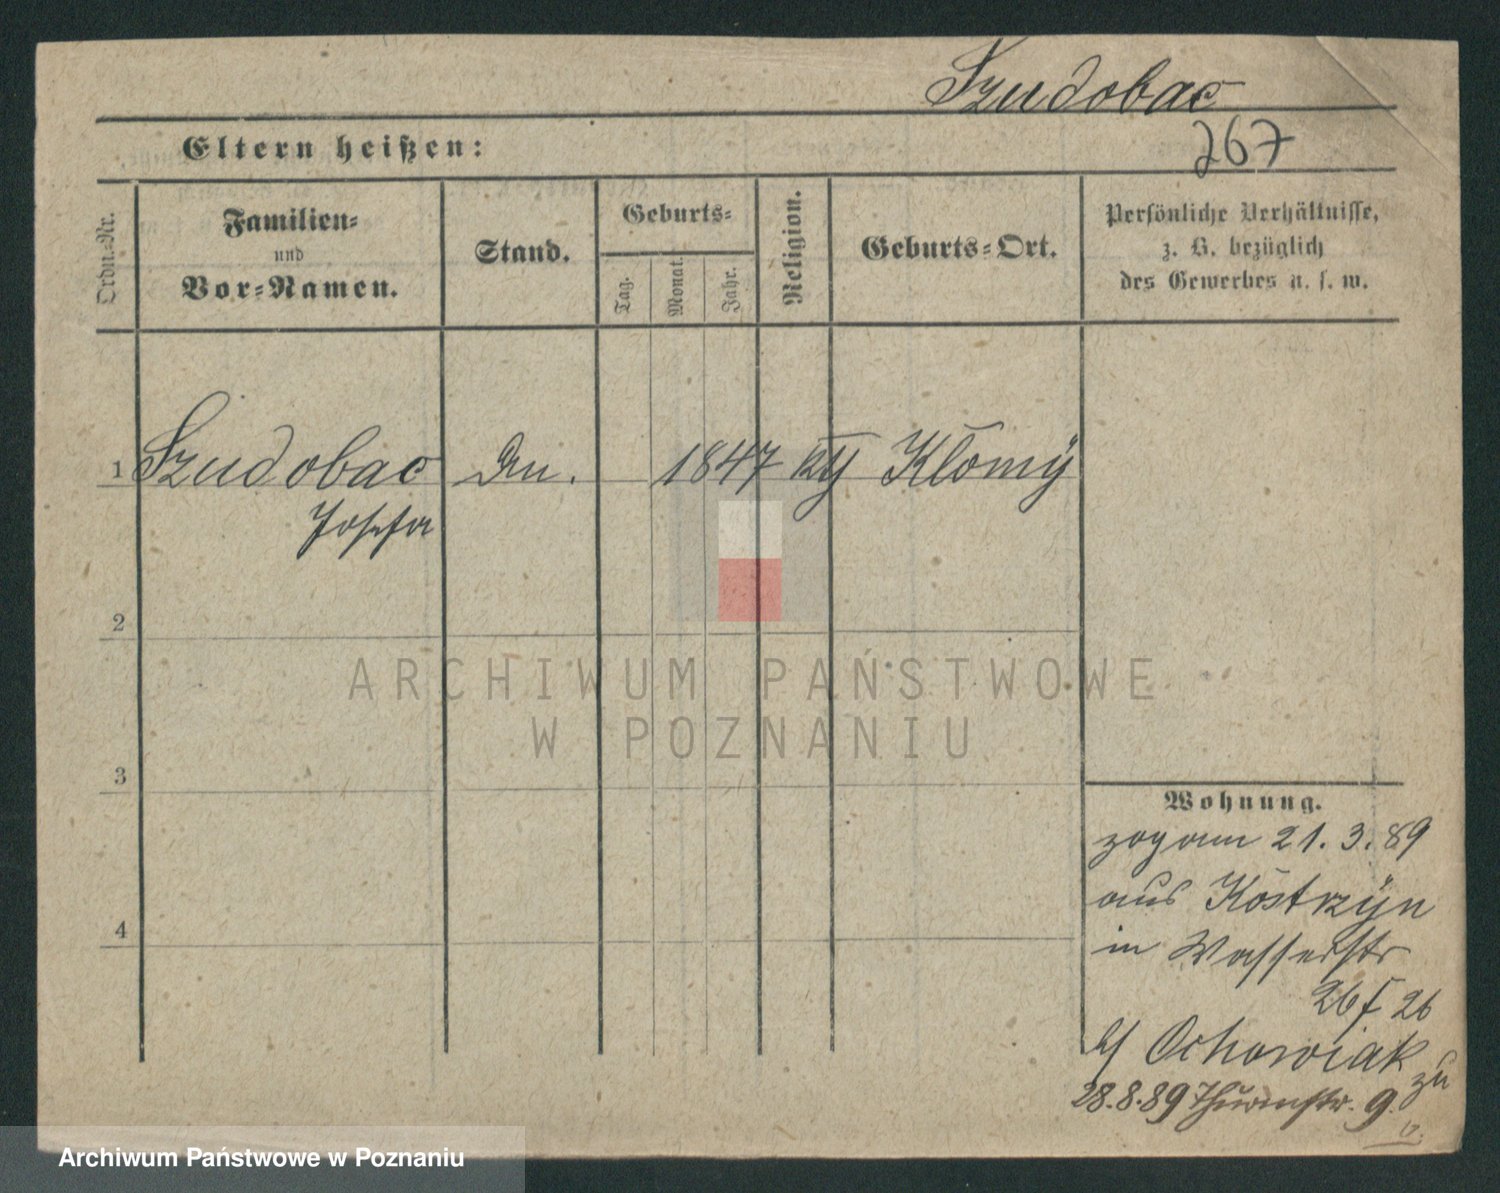 Szudobac
267
Eltern heißen:
Ordn.-Nr.
Familien-
und
Vor-Namen.
Stand.
Geburts-
Tag.
Monat.
Jahr.
Religion.
Geburts-Ort.
Persönliche Verhältnisse,
z. B. bezüglich
des Gewerbes u. s. w.
1 Szudobac 1847 Klony
Josefa
2
3
4
Wohnung.
zog am 21. 3. 89
aus Kostrzyn
in Wasserstr
26 26
Ochowiak zu
28.8.89 Thurmstr. 9.
ARCHIWUM PAŃSTWOWE
W POZNANIU
Archiwum Państwowe w Poznaniu